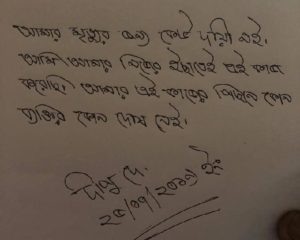 আমার মৃত্যুর জন্য কেউ দায়ী নই।
আমি আমার নিজের ইচ্ছাতেই এই কাজ
করেছি। আমার এই কাজের পিছনে কোন
ব্যক্তির কোন দোষ নেই।
দীপু দে